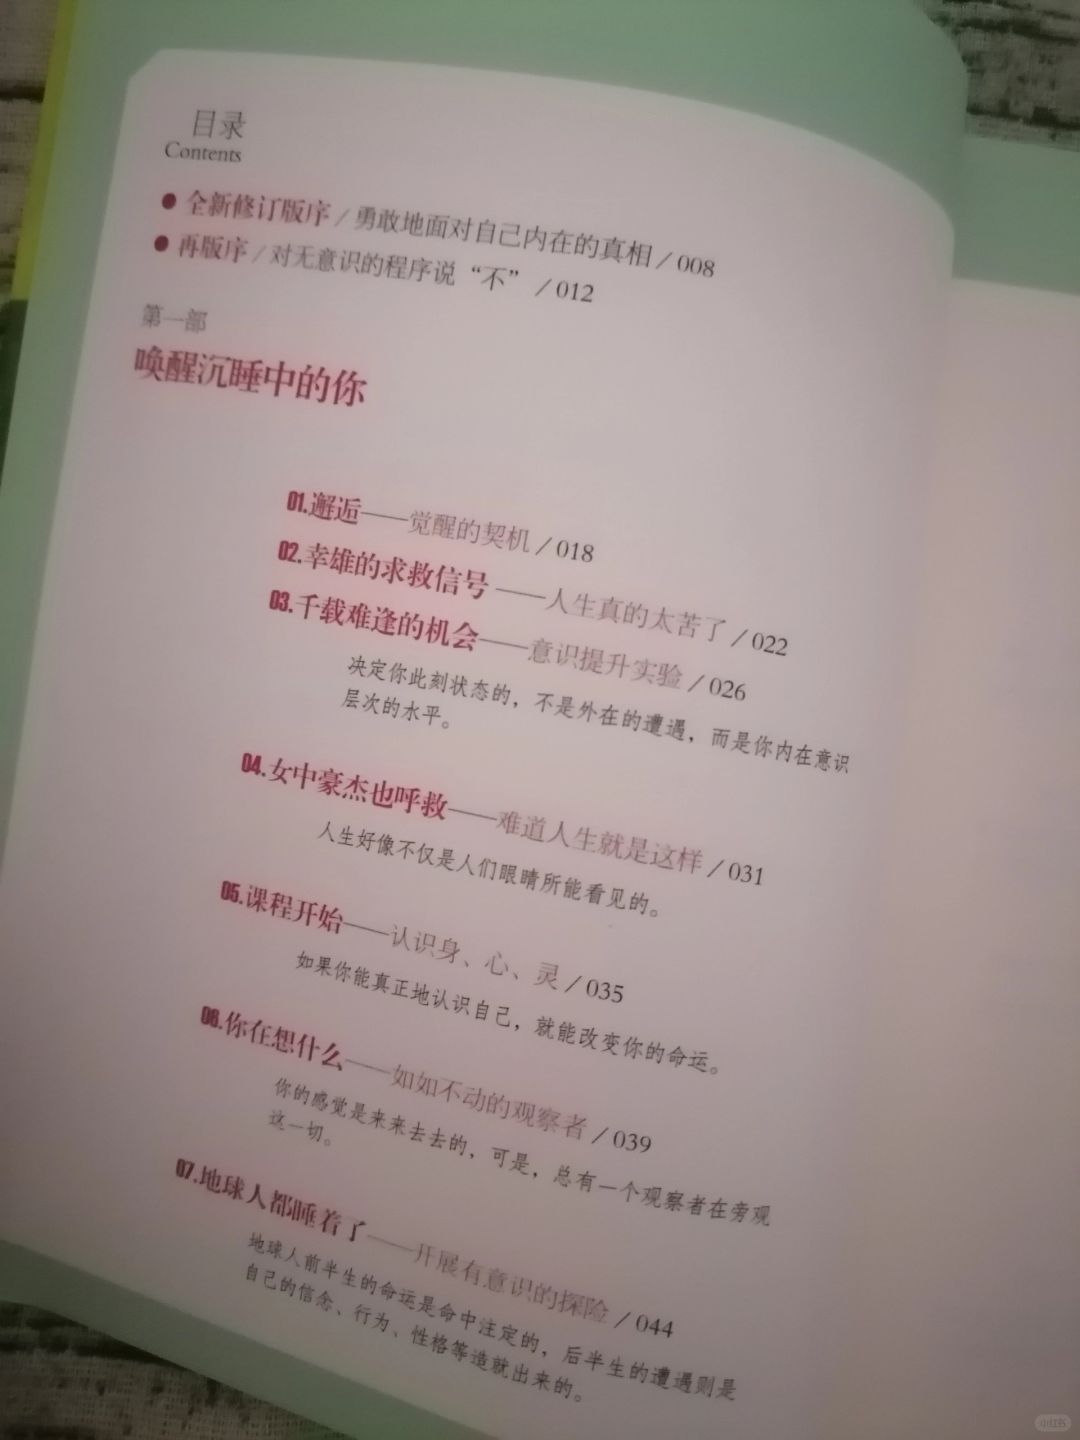 目录
Contents
● 全新修订版序 / 勇敢地面对自己内在的真相 / 008
● 再版序 / 对无意识的程序说“不” / 012
第一部
唤醒沉睡中的你
01.邂逅——觉醒的契机 / 018
02.幸雄的求救信号 ——人生真的太苦了 / 022
03.千载难逢的机会——意识提升实验 / 026
决定你此刻状态的，不是外在的遭遇，而是你内在意识
层次的水平。
04.女中豪杰也呼救——难道人生就是这样 / 031
人生好像不仅是人们眼睛所能看见的。
05.课程开始——认识身、心、灵 / 035
如果你能真正地认识自己，就能改变你的命运。
06.你在想什么——如如不动的观察者 / 039
你的感觉是来来去去的，可是，总有一个观察者在旁观
这一切。
07.地球人都睡着了——开展有意识的探险 / 044
地球人前半生的命运是命中注定的，后半生的遭遇则是
自己的信念、行为、性格等造就出来的。
小红书